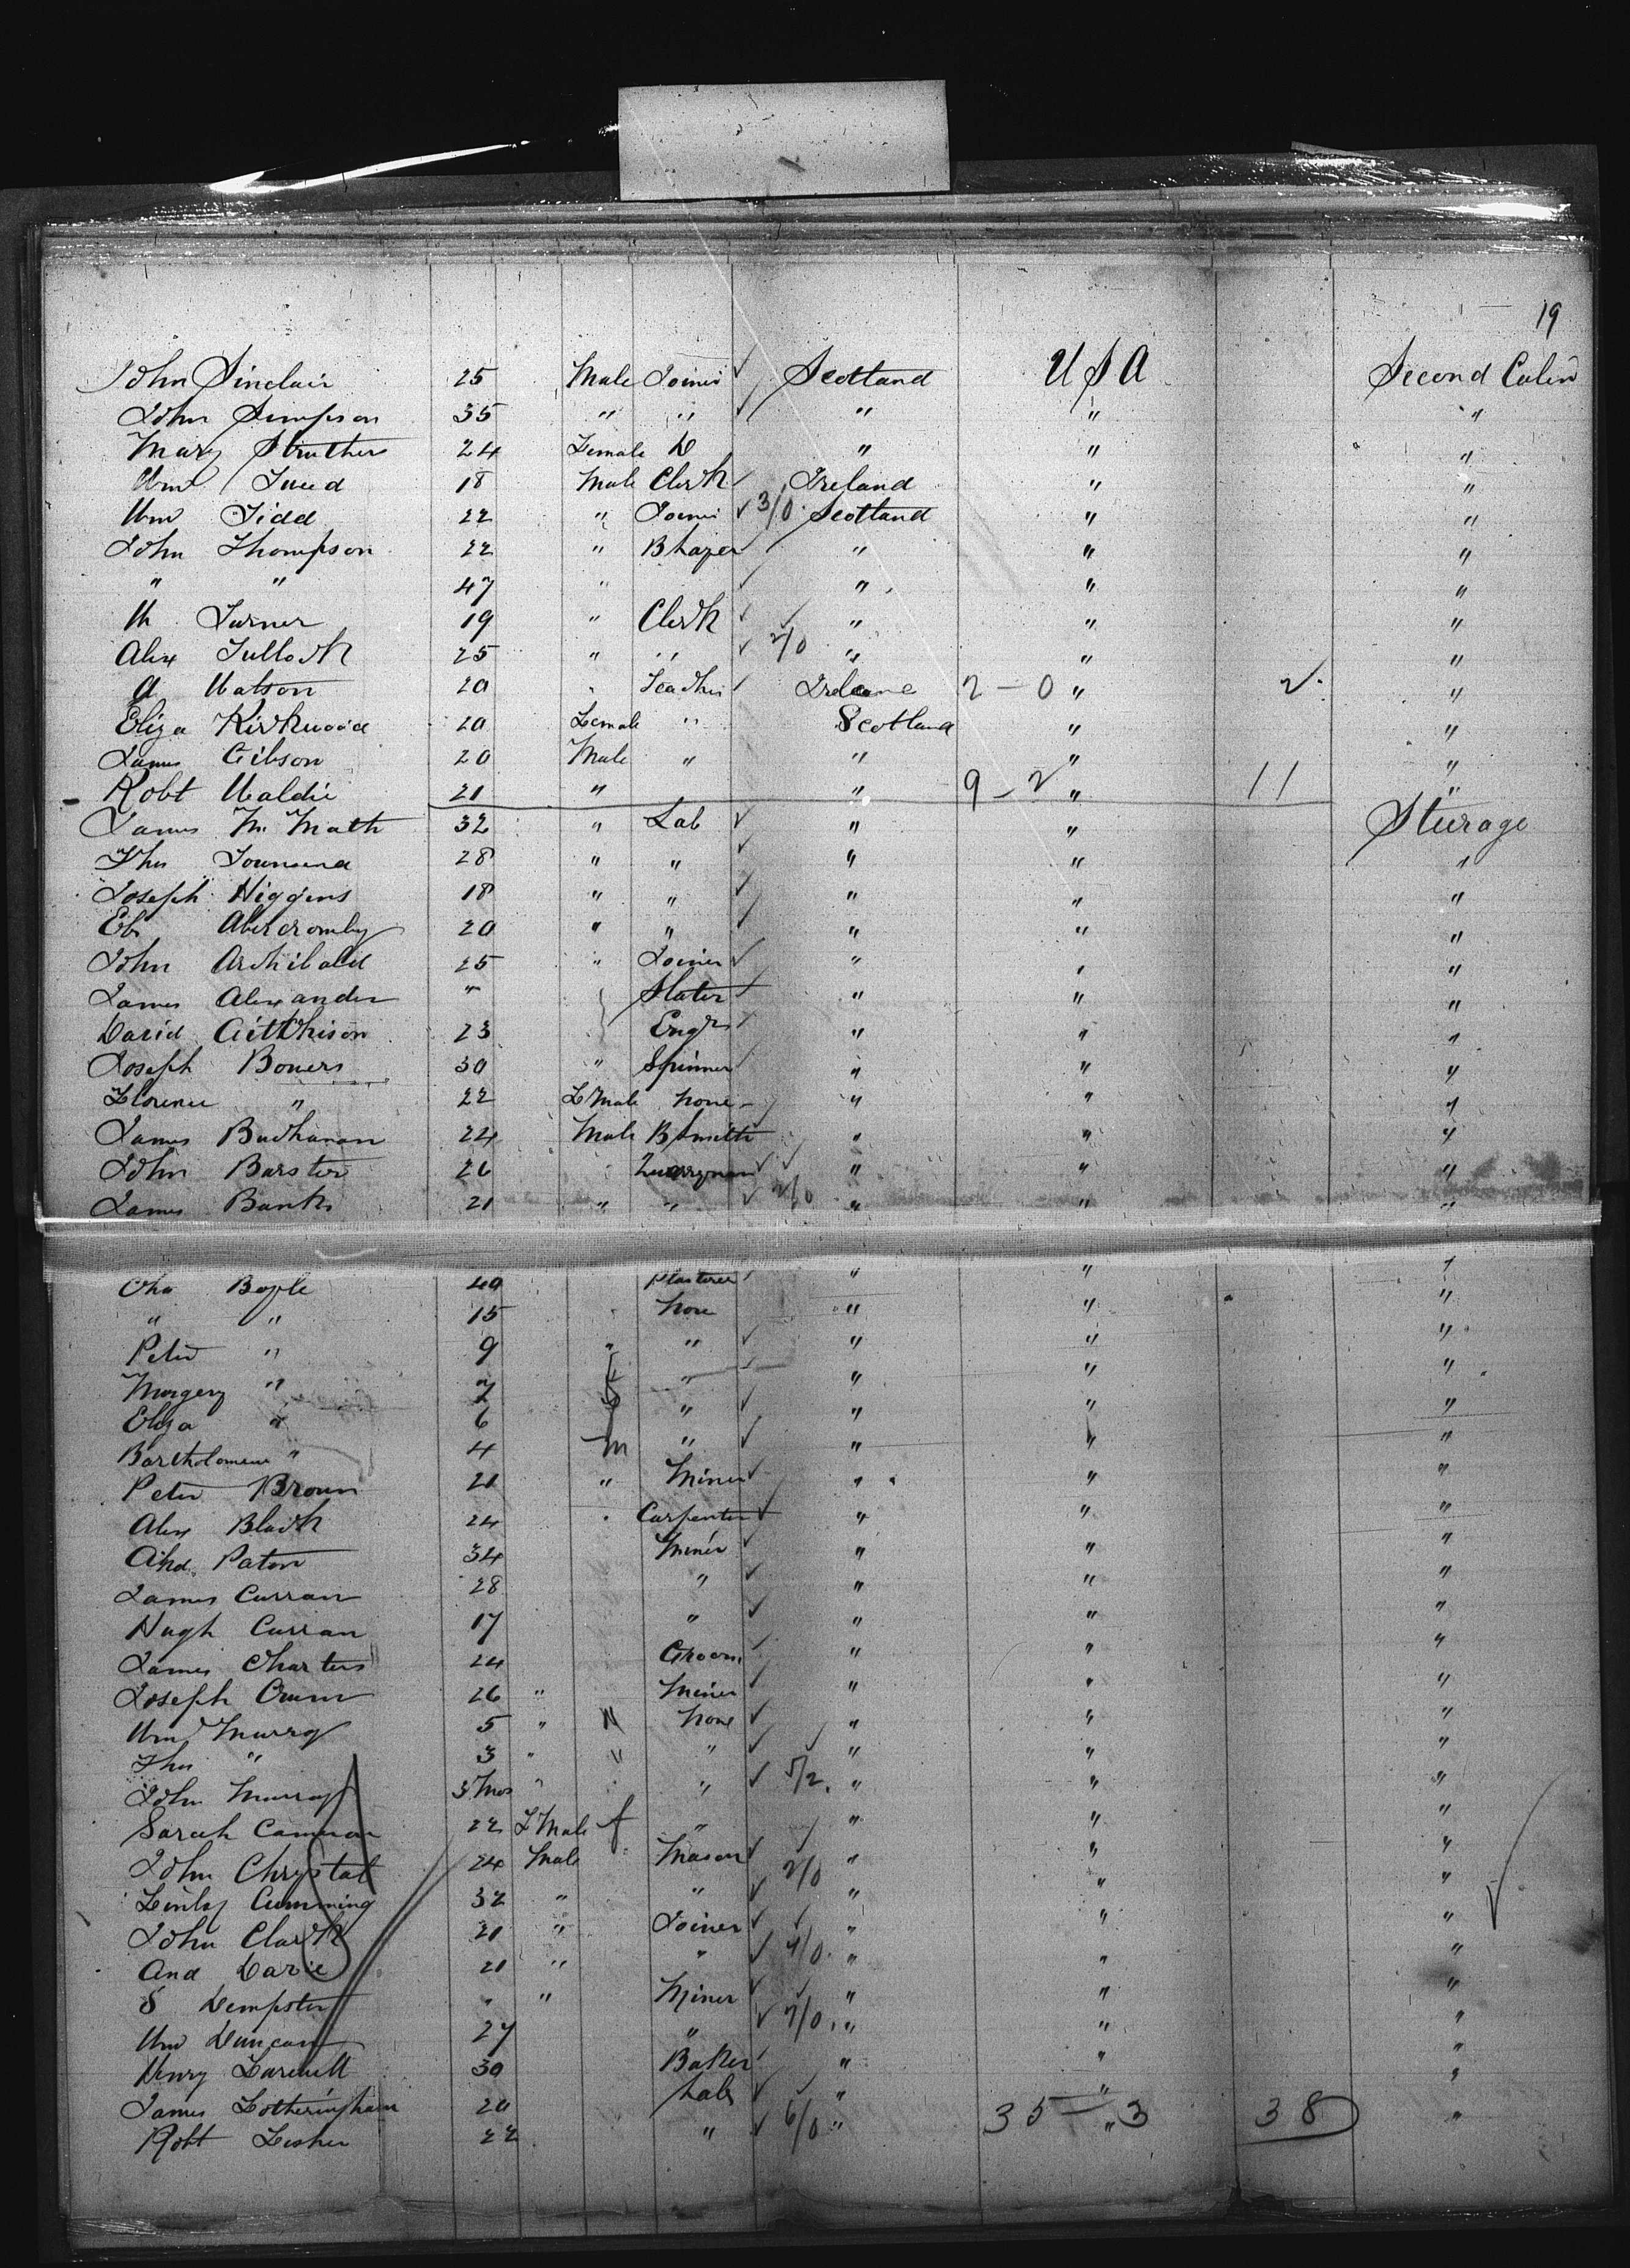 19
John Sinclair 25 Male Joiner Scotland U S A Second Cabin
John Simpson 35 " " " " "
Mary Struthers 24 Female D " " "
Wm 18 Male Clerk Ireland " "
Wm Tidd 22 " Joiner 3/0 Scotland " "
John Thompson 22 " " " "
" " 47 " " " "
W Turner 19 " Clerk " " "
Alex Tullock 25 " " 2/0 " " "
A Watson 20 " Teacher Ireland 2 - 0 " 2 "
Eliza Kirkwood 20 Female " Scotland " "
James Gibson 20 Male " " " "
Robt Waldie 21 " " 9 - 2 " 11 "
James McMath 32 " Lab " " Sterage
Thos Townsend 28 " " " " "
Joseph Higgins 18 " " " " "
Eb Abercromby 20 " " " " "
John Archibald 25 " Joiner " " "
James Alexander " Slater " " "
David Aitchison 23 Engr " " "
Joseph Bowers 30 " Spinner " " "
Florence " 22 FMale none " " "
James Buchanan 24 Male B Smith " " "
John Barster 26 Quarryman " " "
James Banks 21 " " 2/0 " " "
Cha Boyle 40 Plasterer " " "
" " 15 none " " "
Peter " 9 " " " " "
Margery " 7 f " " " "
Eliza " 6 f " " " "
Bartholomew " 4 m " " " "
Peter Brown 21 " Miner " " "
Alex Black 24 Carpenter " " "
Paton 34 Miner " " "
James Curran 28 " " " "
Hugh Curran 17 " " " "
James Charters 24 Groom " " "
Joseph Crum 26 " Miner " " "
Wm Murray 5 " " none " " "
Thos " 3 " " " " " "
John Murray 3 Mos " " 5/2 " " "
Sarah Cameron 22 FMale f " " " "
John Chrystal 24 Male Mason 2/0 " " "
Finlay Cumming 32 " " " " "
John Clark 21 " Joiner " " "
And Davie 21 " " 4/0 " " "
S Dempster " " Miner " " "
Wm Duncan 27 " 7/0 " " "
Henry Farewell 30 Baker " " "
James Fotheringham 20 Lab " " "
Robt Fisher 22 " 6/0 " 35 - " 3 38 "